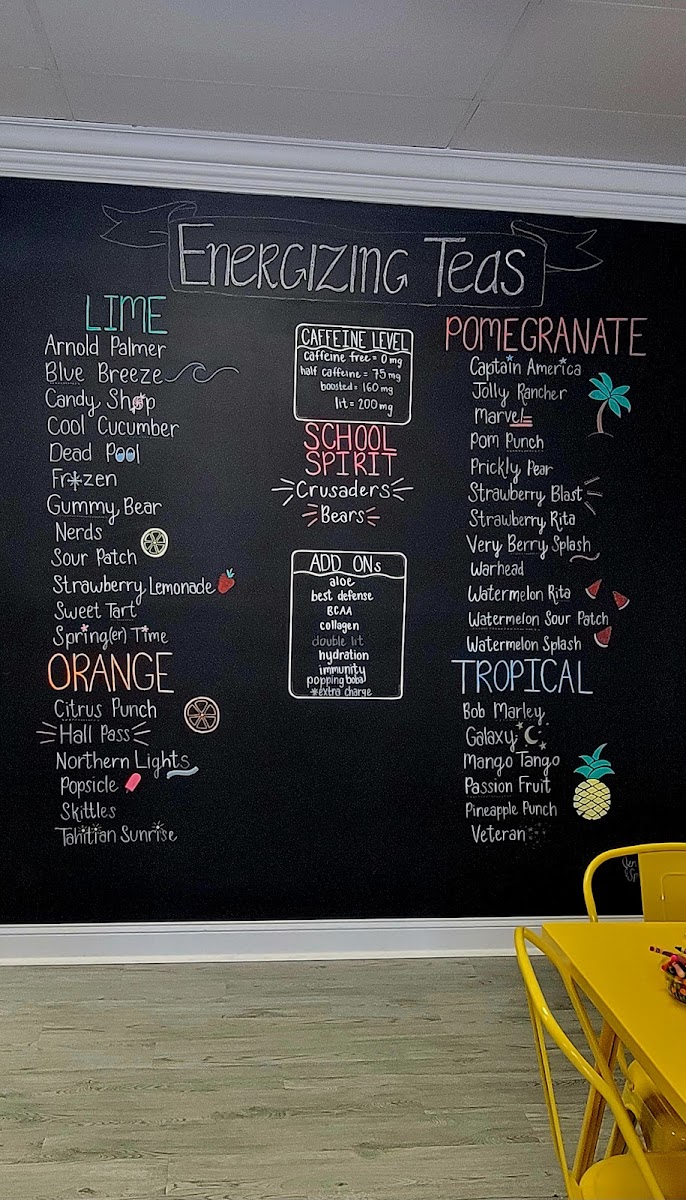 ENERGIZING TEAS
LIME
Arnold Palmer
Blue Breeze
Candy Shop
Cool Cucumber
Dead Pool
Frozen
Gummy Bear
Nerds
Sour Patch
Strawberry Lemonade
Sweet Tart
Spring(er) Time
ORANGE
Citrus Punch
Hall Pass
Northern Lights
Popsicle
Skittles
Tahitian Sunrise
CAFFEINE LEVEL
caffeine free = 0 mg
half caffeine = 75 mg
boosted = 160 mg
lit = 200 mg
SCHOOL
SPIRIT
Crusaders
Bears
ADD ONs
aloe
best defense
BCAA
collagen
double lit
hydration
immunity
popping boba
*extra charge
POMEGRANATE
Captain America
Jolly Rancher
Marvel
Pom Punch
Prickly Pear
Strawberry Blast
Strawberry Rita
Very Berry Splash
Warhead
Watermelon Rita
Watermelon Sour Patch
Watermelon Splash
TROPICAL
Bob Marley
Galaxy
Mango Tango
Passion Fruit
Pineapple Punch
Veteran